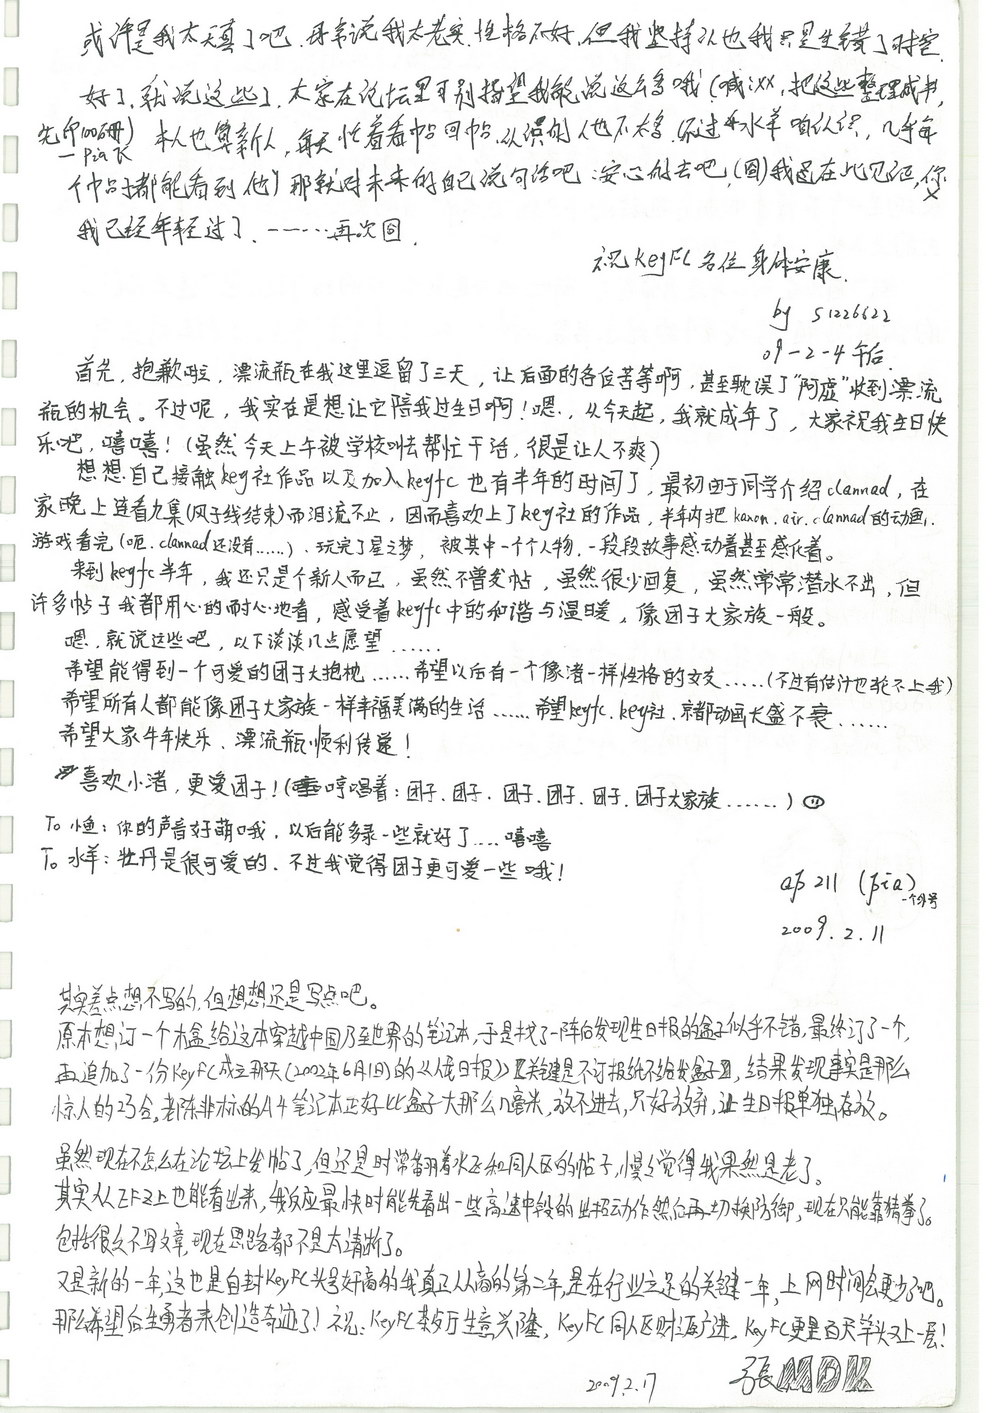 或许是我太天真了吧.母亲说我太老实.性格不好.但我坚持认也我只是生错了时空.
好了.就说这些了.大家在论坛里可别指望我能说这么多哦(喊:XX,把这些整理成书,
先印100万册) 本人也算新人,每天忙着看帖回帖.认识的人也不太多.不过水羊咱认识,几乎每
一pia飞
个帖子都能看到他)那就对未来的自己说句话吧:安心的去吧,(回)我还在此见证,你
我已经年轻过了.——……再次回.
祝KeyFC各位身体安康.
by s1226622
09-2-4午后.
首先,抱歉啦,漂流瓶在我这里逗留了三天,让后面的各位苦等啊,甚至耽误了"阿虚"收到漂流
瓶的机会。不过呢,我实在是想让它陪我过生日啊!嗯,从今天起,我就成年了,大家祝我生日快
乐吧,嘻嘻!(虽然今天上午被学校叫去帮忙干活,很是让人不爽)
想想自己接触key社作品以及加入keyfc也有半年的时间了,最初由于同学介绍clannad,在
家晚上连看九集(风子线结束)而泪流不止,因而喜欢上了key社的作品,半年内把kanon.air.clannad的动画、
游戏看完(呃.clannad还没有……)、玩完了星之梦,被其中一个个人物,一段段故事感动着甚至感化着。
来到keyfc半年,我还只是个新人而已,虽然不曾发帖,虽然很少回复,虽然常常潜水不出,但
许多帖子我都用心的耐心地看,感受着keyfc中的和谐与温暖,像团子大家族一般。
嗯.就说这些吧,以下谈谈几点愿望……
希望能得到一个可爱的团子大抱枕……希望以后有一个像渚一样性格的女友……(不过有估计也轮不上我)
希望所有人都能像团子大家族一样幸福美满的生活……希望keyfc.key社.京都动画长盛不衰……
希望大家牛年快乐、漂流瓶顺利传递!
喜欢小渚,更爱团子!(哼唱着:团子、团子、团子、团子、团子、团子大家族……)
To 小鱼:你的声音好萌哦,以后能多录一些就好了……嘻嘻
To 水羊:牡丹是很可爱的、不过我觉得团子更可爱一些哦!
ap211 (pia)
一个外号
2009.2.11
其实差点想不写的,但想想还是写点吧。
原本想订一个木盒给这本穿越中国乃至世界的笔记本,于是找了一阵后发现生日报的盒子似乎不错,最终订了一个,
再追加了一份KeyFC成立那天(2002年6月1日)的《人民日报》【关键是不订报纸不给发盒子】,结果发现事实是那么
惊人的巧合。老陈非标的A4笔记本正好比盒子大那么几毫米,放不进去,只好放弃,让生日报单独存放。
虽然现在不怎么在论坛上发帖了,但还是时常翻着水区和同人区的帖子,慢慢觉得我果然是老了。
其实从EFZ上也能看出来,我反应最快时能先看出一些高速中段的出招动作然后再切换防御,现在只能靠猜拳了。
包括很久不写文章,现在思路都不是太清晰了。
又是新的一年,这也是自封KeyFC头号好高的我真正从高的第二年,是在行业立足的关键一年,上网时间会更少了吧。
那么希望后生勇者来创造奇迹了!祝:KeyFC茶餐厅生意兴隆,KeyFC同人区财源广进,KeyFC更是百尺竿头又上一层!
2009.2.17 張MDK